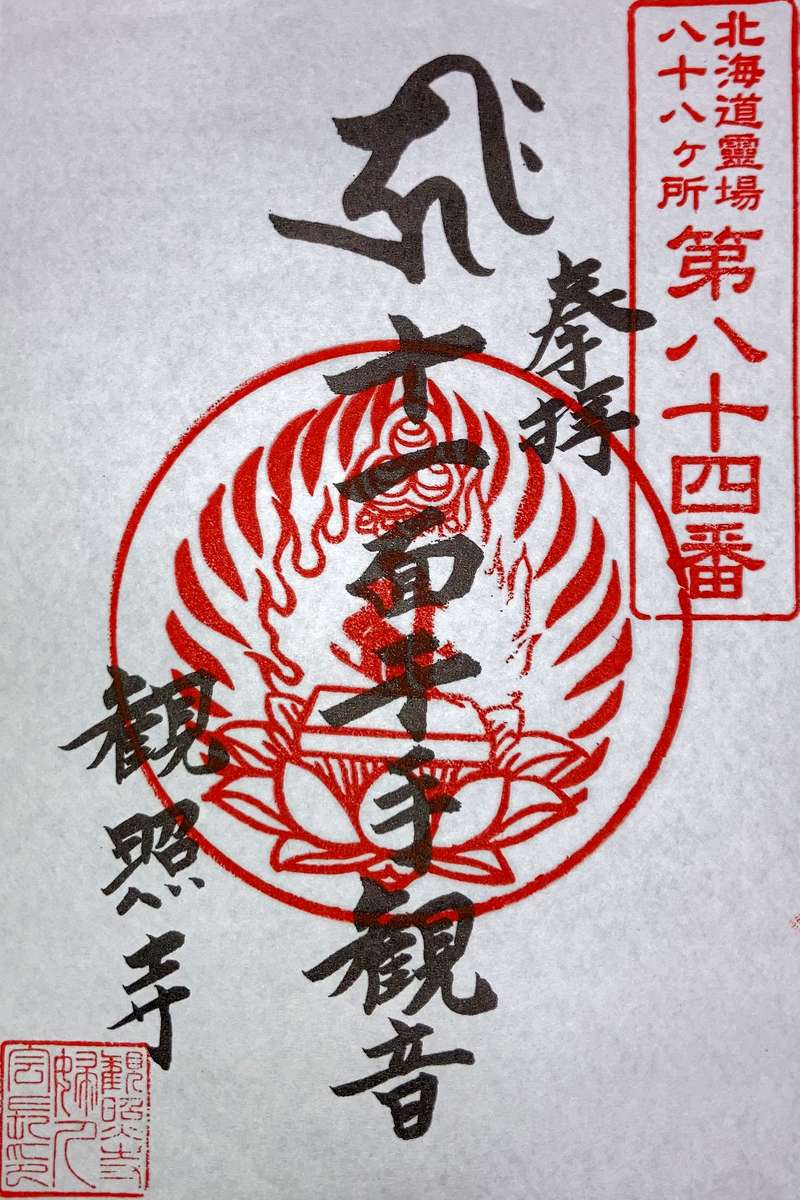 北海道靈場
八十八ヶ所
第八十四番
奉拝
十一面千手観音
観照寺